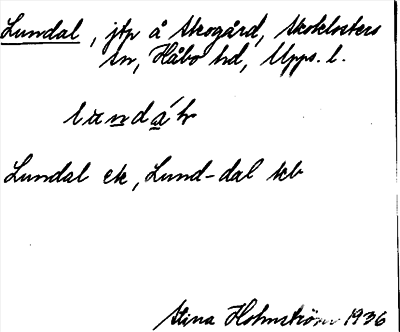 Lundal, jtp å Skogård, Skoklosters
sn, Håbo hd, Upps. l.
Lundal ek, Lund-dal kb
Stina Holmström 1936